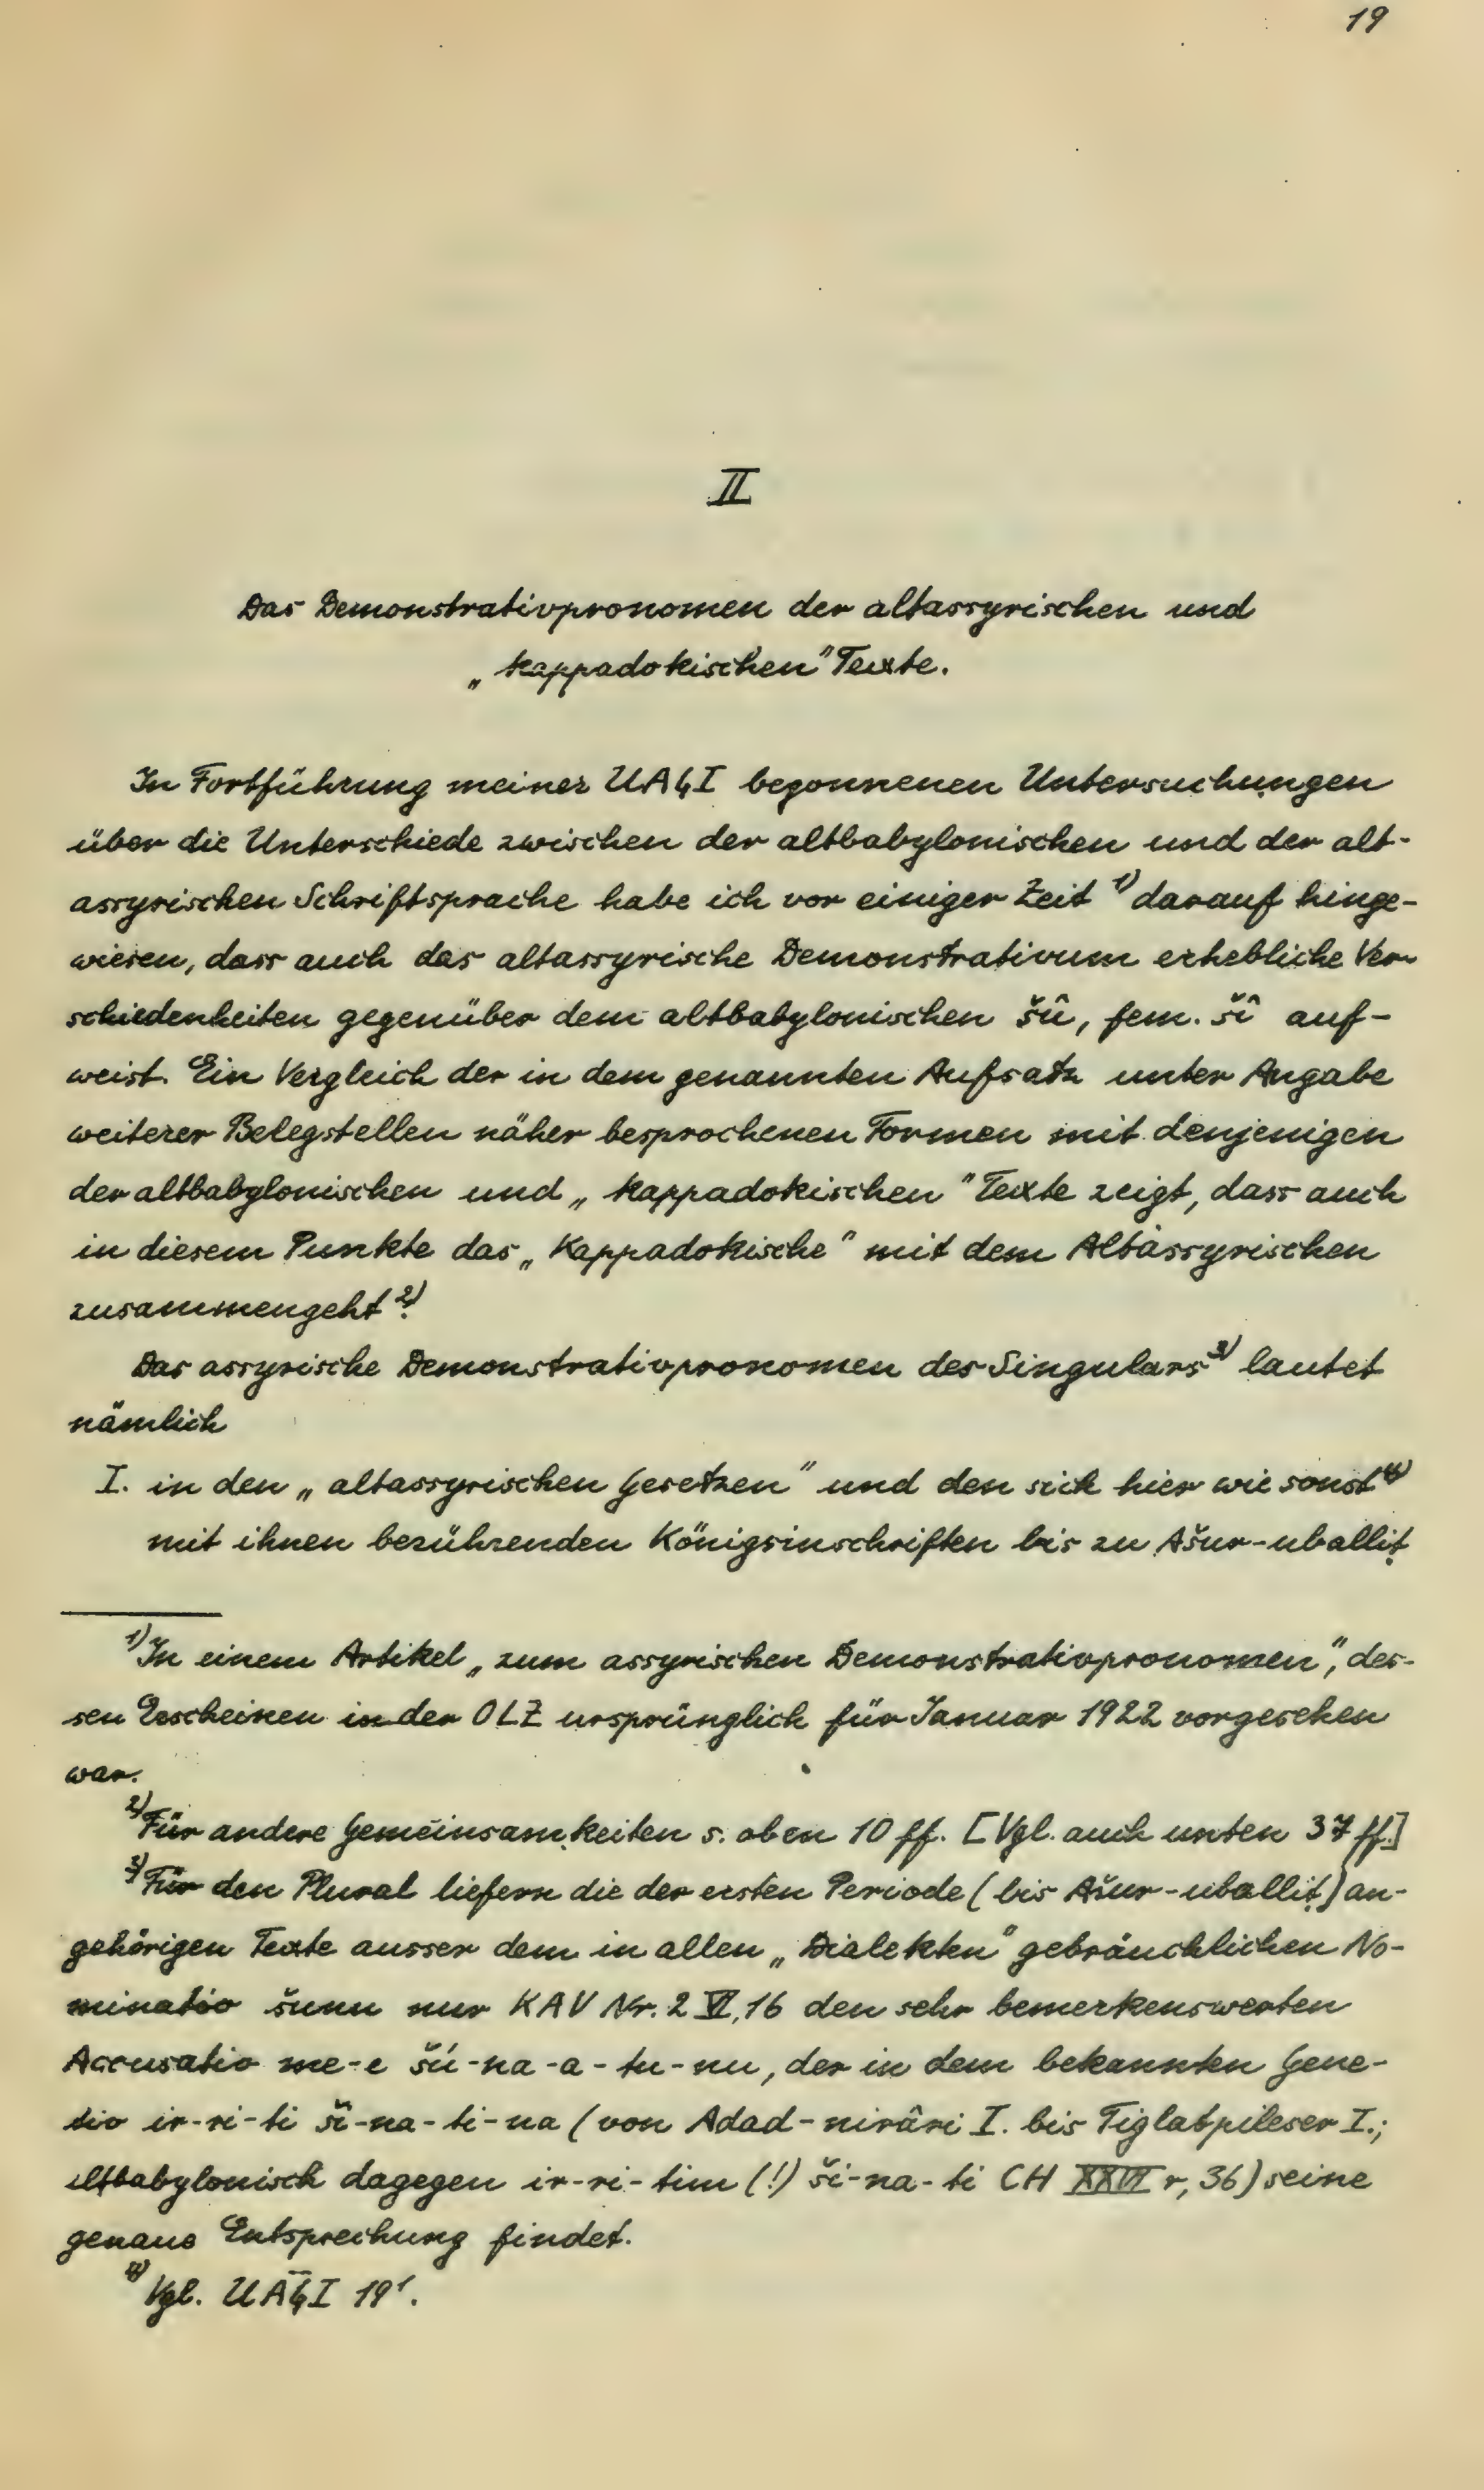 19
II
Das Demonstrativpronomen der altassyrischen und
„kappadokischen" Texte.
In Fortführung meiner UAG I begonnenen Untersuchungen
über die Unterschiede zwischen der altbabylonischen und der alt-
assyrischen Schriftsprache habe ich vor einiger Zeit 1) darauf hinge-
wiesen, dass auch das altassyrische Demonstrativum erhebliche Ver-
schiedenheiten gegenüber dem altbabylonischen šû, fem. šî auf-
weist. Ein Vergleich der in dem genannten Aufsatz unter Angabe
weiterer Belegstellen näher besprochenen Formen mit denjenigen
der altbabylonischen und „kappadokischen" Texte zeigt, dass auch
in diesem Punkte das „Kappadokische" mit dem Altassyrischen
zusammengeht 2).
Das assyrische Demonstrativpronomen des Singulars 3) lautet
nämlich
I. in den „altassyrischen Gesetzen" und den sich hier wie sonst 4)
mit ihnen berührenden Königsinschriften bis zu Ašur-uballiṭ
1) In einem Artikel „zum assyrischen Demonstrativpronomen", des-
sen Erscheinen in der OLZ ursprünglich für Januar 1922 vorgesehen
war.
2) Für andere Gemeinsamkeiten s. oben 10 ff. [Vgl. auch unten 37 ff.]
3) Für den Plural liefern die der ersten Periode (bis Ašur-uballiṭ) an-
gehörigen Texte ausser dem in allen „Dialekten" gebräuchlichen No-
minativ šunu nur KAV Nr. 2 VI, 16 den sehr bemerkenswerten
Accusativ me-e šú-na-a-tu-nu, der in dem bekannten Gene-
tiv ir-ri-ti ši-na-ti-na (von Adad-nirâri I. bis Tiglatpileser I.;
altbabylonisch dagegen ir-ri-tim (!) ši-na-ti CH XXVI r, 36) seine
genaue Entsprechung findet.
4) Vgl. UAG I 19¹.